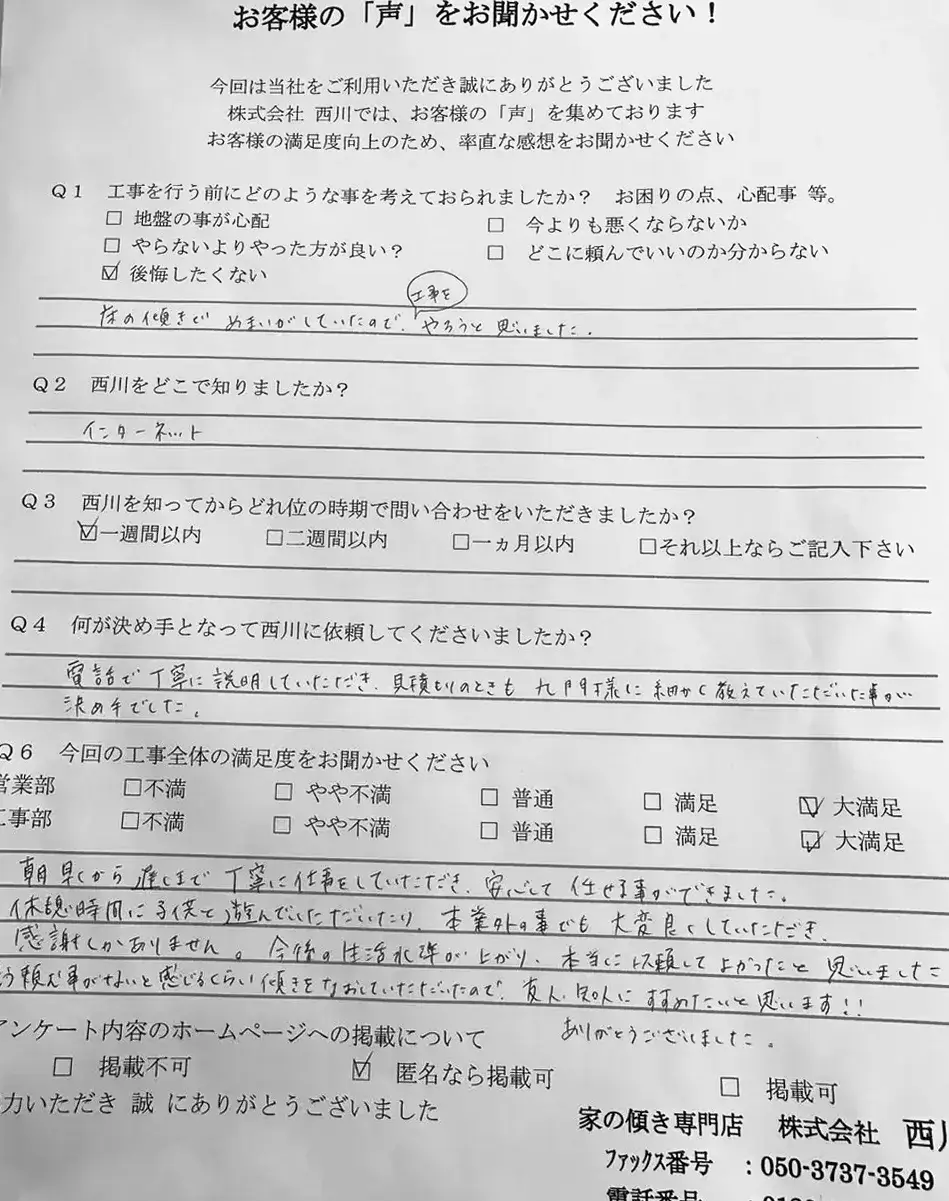 お客様の「声」をお聞かせください！
今回は当社をご利用いただき誠にありがとうございました
株式会社 西川では、お客様の「声」を集めております
お客様の満足度向上のため、率直な感想をお聞かせください
Ｑ１　工事を行う前にどのような事を考えておられましたか？　お困りの点、心配事 等。
□ 地盤の事が心配　□ 今よりも悪くならないか
□ やらないよりやった方が良い？　□ どこに頼んでいいのか分からない
☑ 後悔したくない
工事を
床の傾きで めまいがしていたので、やろうと思いました。
Ｑ２　西川をどこで知りましたか？
インターネット
Ｑ３　西川を知ってからどれ位の時期で問い合わせをいただきましたか？
☑一週間以内　□二週間以内　□一ヵ月以内　□それ以上ならご記入下さい
Ｑ４　何が決め手となって西川に依頼してくださいましたか？
電話で丁寧に説明していただき、見積もりのときも 九門様に細かく教えていただいた事が
決め手でした。
Ｑ６　今回の工事全体の満足度をお聞かせください
営業部　□不満　□ やや不満　□ 普通　□ 満足　☑ 大満足
工事部　□不満　□ やや不満　□ 普通　□ 満足　☑ 大満足
朝早くから遅くまで丁寧に仕事をしていただき、安心して任せる事ができました。
休憩時間に子供と遊んでいただいたり、本業外の事でも大変良くしていただき、
感謝しかありません。今後の生活水準が上がり、本当に依頼してよかったと思いました
う頼む事がないと感じるくらい傾きをなおしていただいたので、友人、知人にすすめたいと思います!!
ありがとうございました。
アンケート内容のホームページへの掲載について
□ 掲載不可　☑ 匿名なら掲載可　□ 掲載可
力いただき 誠 にありがとうございました
家の傾き専門店　株式会社 西川
ファックス番号　：050-3737-3549
電話番号　：0120